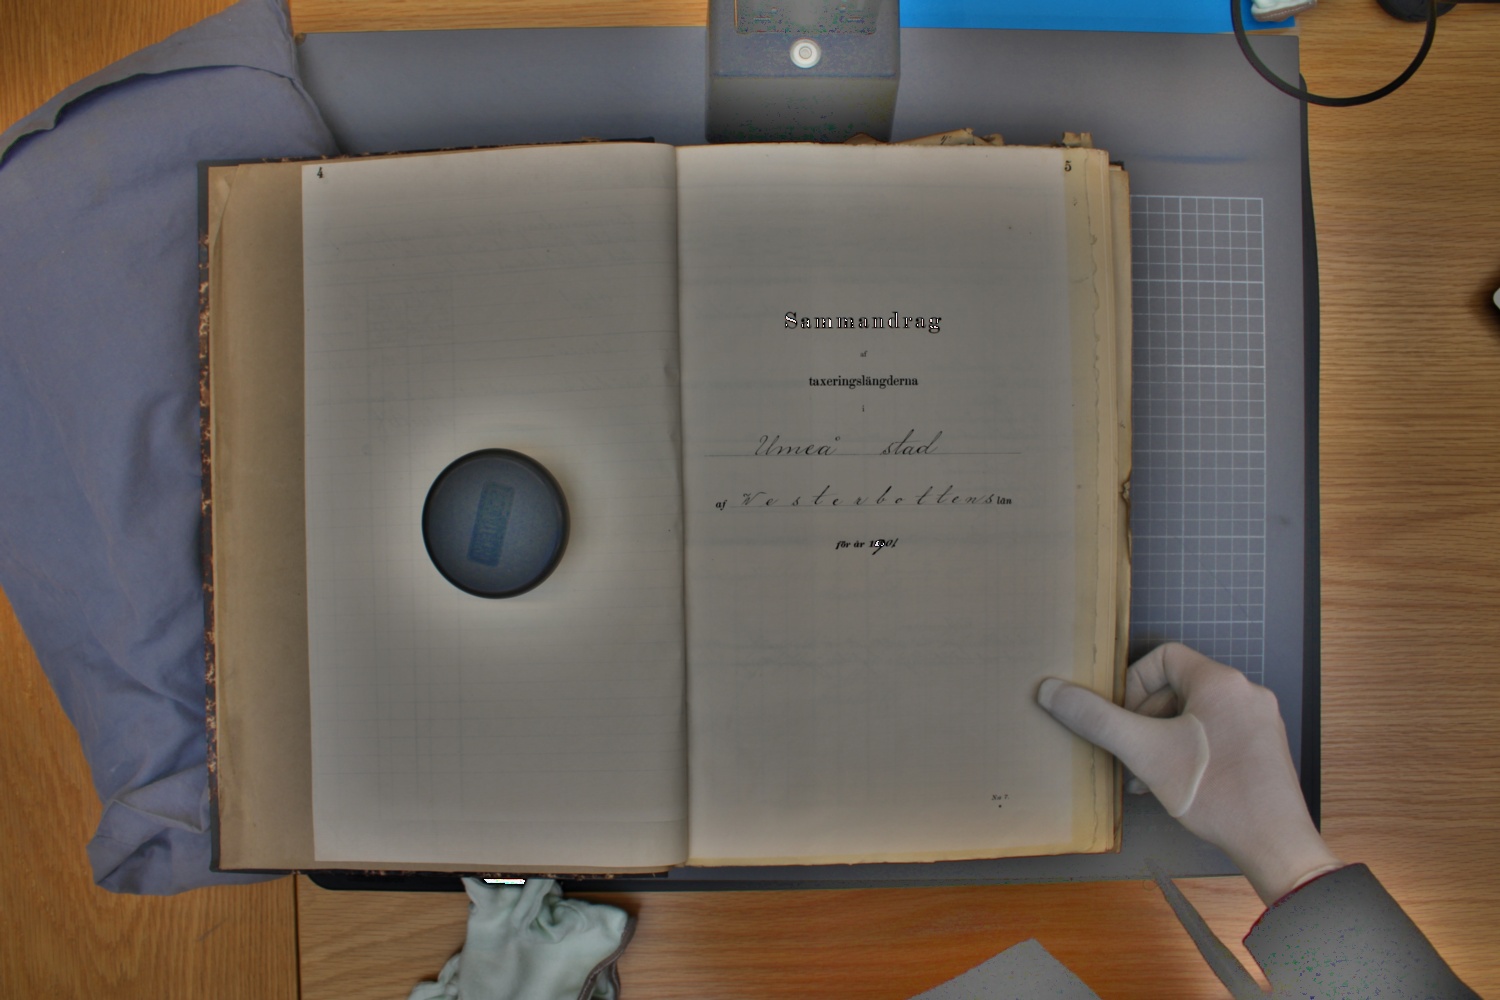 4
5
Sammandrag
af
taxeringslängderna
i
Umeå stad
af Westerbottens län
för år 1901
N:o 7.